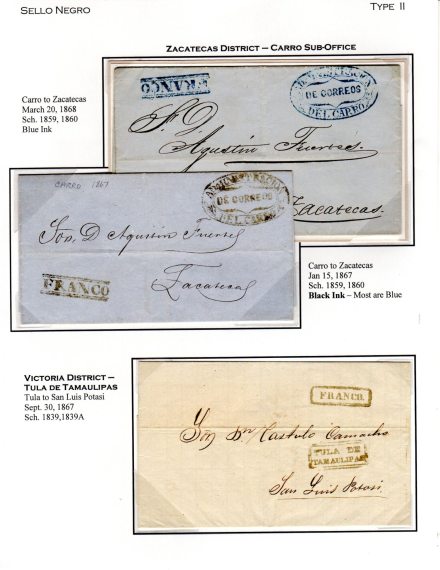 SELLO NEGRO
TYPE II
ZACATECAS DISTRICT – CARRO SUB-OFFICE
Carro to Zacatecas
March 20, 1868
Sch. 1859, 1860
Blue Ink
FRANCO
DE CORREOS
DEL CARRO
Agustin Fuertes
Zacatecas.
CARRO 1867
DE CORREOS
DEL CARRO
Sor. D Agustin Fuertes
FRANCO
Zacatecas
Carro to Zacatecas
Jan 15, 1867
Sch. 1859, 1860
Black Ink – Most are Blue
VICTORIA DISTRICT –
TULA DE TAMAULIPAS
Tula to San Luis Potasi
Sept. 30, 1867
Sch. 1839,1839A
FRANCO.
Sor Dn Castulo Camacho
TULA DE
TAMAULIPAS
San Luis Potosi